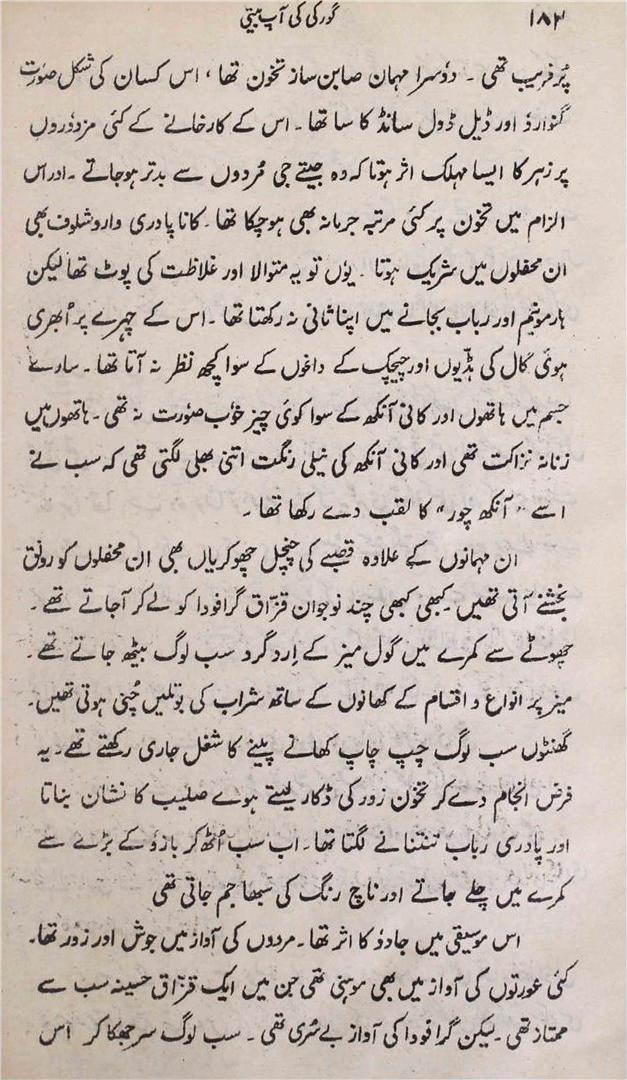 ۱۸۲
گورکی کی آپ بیتی
پُرفریب تھی ۔ دوسرا مہمان صابن ساز تخون تھا ، اس کسان کی شکل صورت
گنوارو اور ڈیل ڈول سانڈ کا سا تھا ۔ اس کے کارخانے کے کئی مزدوروں
پر زہر کا ایسا مہلک اثر ہوتا کہ وہ جیتے جی مُردوں سے بدتر ہوجاتے ۔ اور اس
الزام میں تخون پر کئی مرتبہ جرمانہ بھی ہوچکا تھا ۔ کانا پادری واروشلوف بھی
ان محفلوں میں شریک ہوتا ۔ یوں تو یہ متوالا اور غلاظت کی پوٹ تھا لیکن
ہارمونیم اور رباب بجانے میں اپنا ثانی نہ رکھتا تھا ۔ اس کے چہرے پر اُبھری
ہوئی گال کی ہڈیوں اور چیچک کے داغوں کے سوا کچھ نظر نہ آتا تھا ۔ سارے
جسم میں ہاتھوں اور کانی آنکھ کے سوا کوئی چیز خوُب صوُرت نہ تھی ۔ ہاتھوں میں
زنانہ نزاکت تھی اور کانی آنکھ کی نیلی رنگت اتنی بھلی لگتی تھی کہ سب نے
اسے “ آنکھ چور “ کا لقب دے رکھا تھا ۔
ان مہمانوں کے علاوہ قصبے کی چنچل چھوکریاں بھی ان محفلوں کو رونق
بخشنے آتی تھیں ۔ کبھی کبھی چند نوجوان قزّاق گرافودا کو لے کر آجاتے تھے ۔
چھوٹے سے کمرے میں گول میز کے اِرد گرد سب لوگ بیٹھ جاتے تھے ۔
میز پر انواع و اقسام کے کھانوں کے ساتھ شراب کی بوتلیں چُنی ہوتی تھیں ۔
گھنٹوں سب لوگ چپ چاپ کھانے پینے کا شغل جاری رکھتے تھے ۔ یہ
فرض انجام دے کر تخون زور کی ڈکار لیتے ہوے صلیب کا نشان بناتا
اور پادری رباب تنتنانے لگتا تھا ۔ اب سب اُٹھ کر بازوُ کے بڑے سے
کمرے میں چلے جاتے اور ناچ رنگ کی سبھا جم جاتی تھی
اس موسیقی میں جادوُ کا اثر تھا ۔ مردوں کی آواز میں جوش اور زور تھا ۔
کئی عورتوں کی آواز میں بھی موہنی تھی جن میں ایک قزّاق حسینہ سب سے
ممتاز تھی ۔ لیکن گرافودا کی آواز بے سُری تھی ۔ سب لوگ سر جھکا کر اس